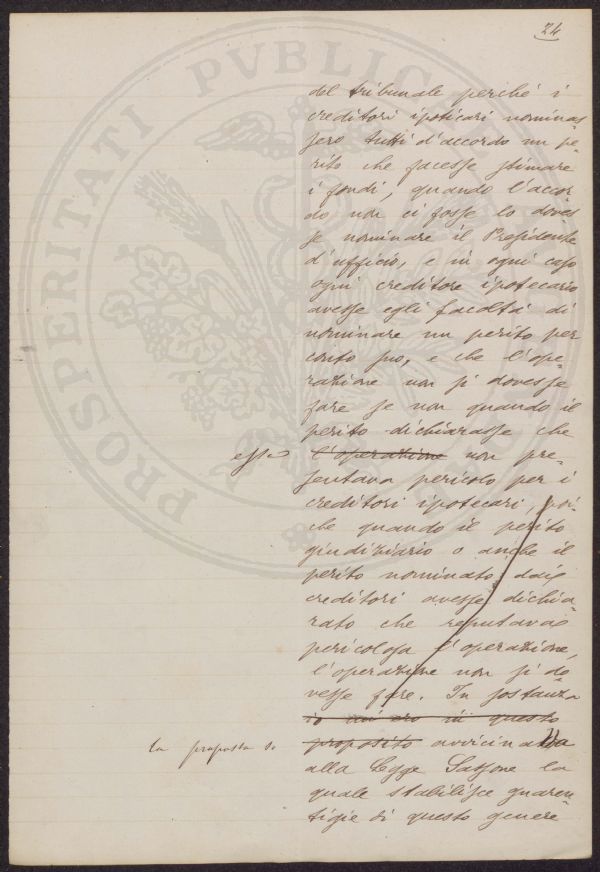 24
del tribunale perché i
creditori ipoticari nominas
sero tutti d'accordo un pe-
rito che facesse stimare
i fondi, quando l'accor
do non ci fosse lo doves
se nominare il Presidente
d'ufficio, e in ogni caso
ogni creditore ipotecario
avesse egli facoltà di
nominare un perito per
conto suo, e che l'ope-
razione non si dovesse
fare se non quando il
perito dichiarasse che
essa l'operazione non pre-
sentava pericolo per i
creditori ipotecari, poi-
che quando il perito
giudiziario o anche il
perito nominato dai
creditori avesse dichia-
rato che reputava
pericolosa l'operazione,
l'operazione non si do
vesse fare. In sostanza
io mi ero in questo
la proposta si proposito avvicinava
alla Legge Sassone la
quale stabilisce guaren-
tigie di questo genere
PROSPERITATI PVBLICAE